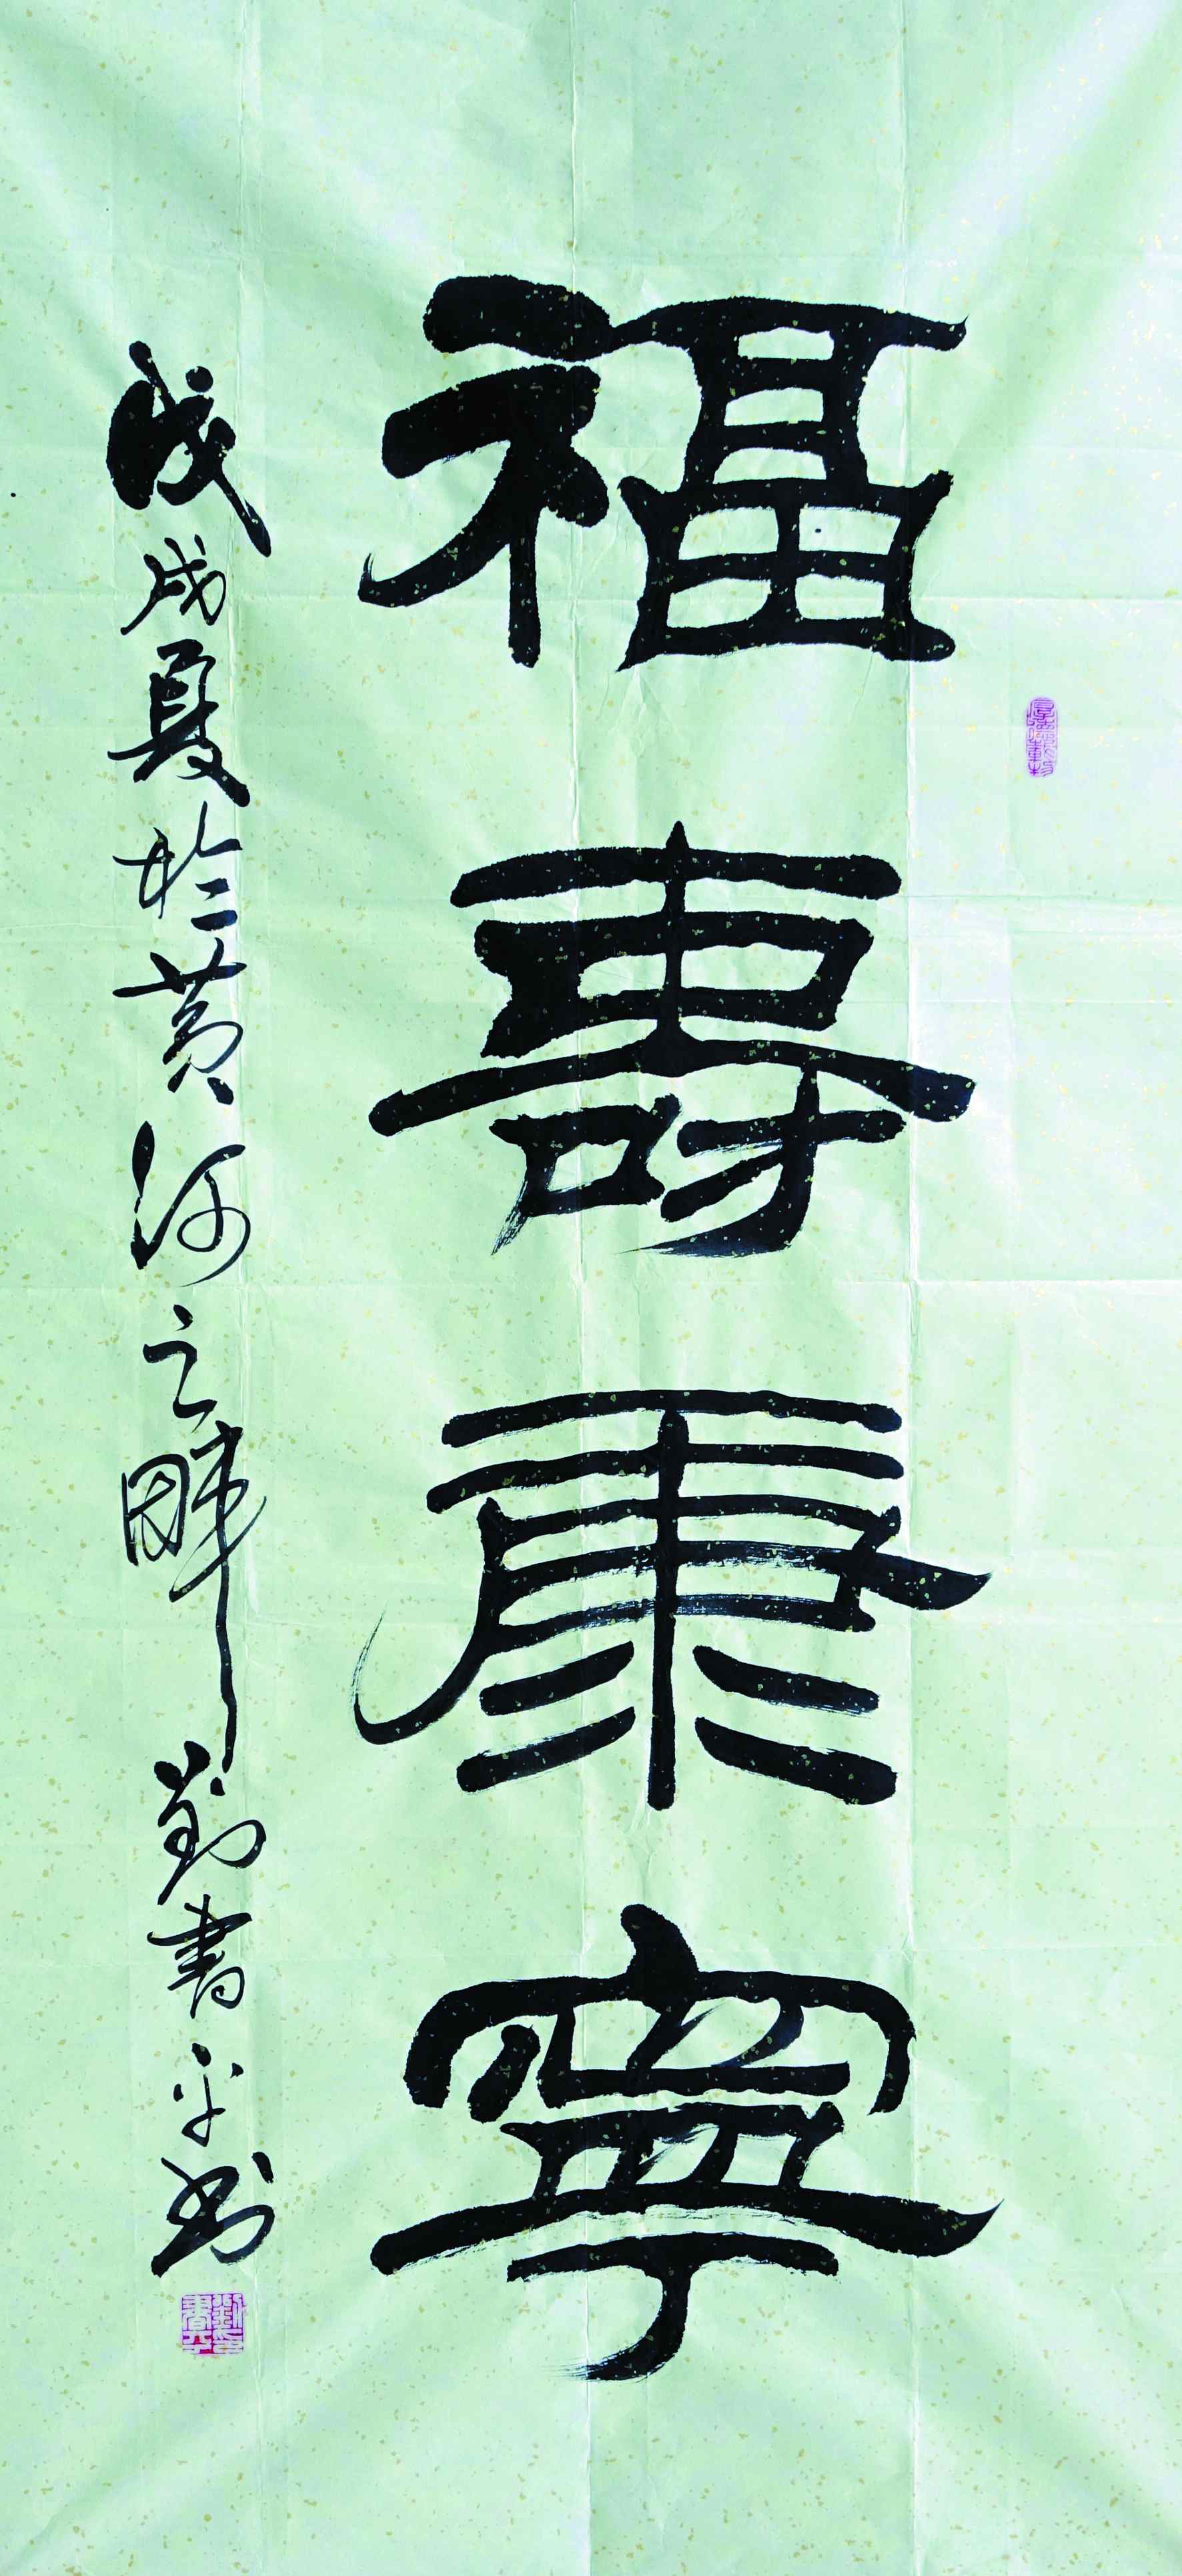 福壽康寧
戊戌夏於黃河之畔劉書平書